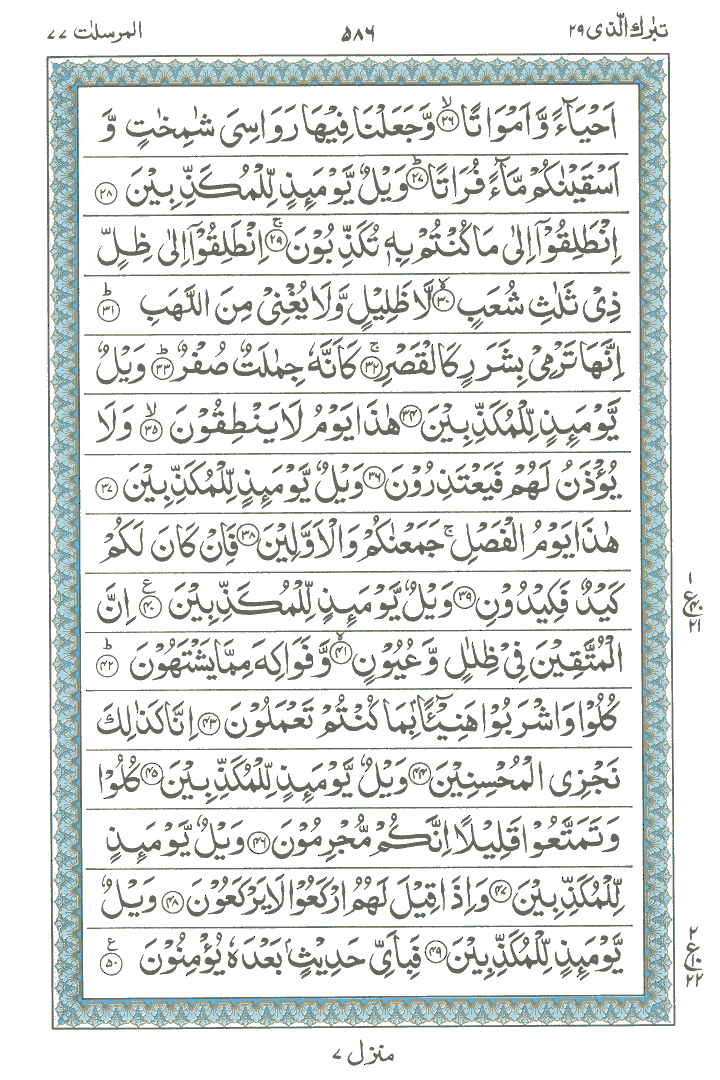 تبٰرك الّذی ۲۹
۵۸۶
المرسلٰت ۷۷
اَحْيَآءً وَّ اَمْوَاتًا ۙ﴿۲۶﴾ وَّ جَعَلْنَا فِيْهَا رَوَاسِیَ شٰمِخٰتٍ وَّ
اَسْقَيْنٰكُمْ مَّآءً فُرَاتًا ؕ﴿۲۷﴾ وَيْلٌ يَّوْمَئِذٍ لِّلْمُكَذِّبِيْنَ ﴿۲۸﴾
اِنْطَلِقُوْۤا اِلٰی مَا كُنْتُمْ بِهٖ تُكَذِّبُوْنَ ۚ﴿۲۹﴾ اِنْطَلِقُوْۤا اِلٰی ظِلٍّ
ذِیْ ثَلٰثِ شُعَبٍ ۙ﴿۳۰﴾ لَّا ظَلِيْلٍ وَّ لَا يُغْنِیْ مِنَ اللَّهَبِ ؕ﴿۳۱﴾
اِنَّهَا تَرْمِیْ بِشَرَرٍ كَالْقَصْرِ ۚ﴿۳۲﴾ كَاَنَّهٗ جِمٰلَتٌ صُفْرٌ ؕ﴿۳۳﴾ وَيْلٌ
يَّوْمَئِذٍ لِّلْمُكَذِّبِيْنَ ﴿۳۴﴾ هٰذَا يَوْمُ لَا يَنْطِقُوْنَ ۙ﴿۳۵﴾ وَ لَا
يُؤْذَنُ لَهُمْ فَيَعْتَذِرُوْنَ ﴿۳۶﴾ وَيْلٌ يَّوْمَئِذٍ لِّلْمُكَذِّبِيْنَ ﴿۳۷﴾
هٰذَا يَوْمُ الْفَصْلِ ۚ جَمَعْنٰكُمْ وَ الْاَوَّلِيْنَ ﴿۳۸﴾ فَاِنْ كَانَ لَكُمْ
كَيْدٌ فَكِيْدُوْنِ ﴿۳۹﴾ وَيْلٌ يَّوْمَئِذٍ لِّلْمُكَذِّبِيْنَ ﴿۴۰﴾ ع اِنَّ
۱
ع
۴۰
۲۱
الْمُتَّقِيْنَ فِیْ ظِلٰلٍ وَّ عُيُوْنٍ ۙ﴿۴۱﴾ وَّ فَوَاكِهَ مِمَّا يَشْتَهُوْنَ ؕ﴿۴۲﴾
كُلُوْا وَ اشْرَبُوْا هَنِيْٓـئًۢا بِمَا كُنْتُمْ تَعْمَلُوْنَ ﴿۴۳﴾ اِنَّا كَذٰلِكَ
نَجْزِی الْمُحْسِنِيْنَ ﴿۴۴﴾ وَيْلٌ يَّوْمَئِذٍ لِّلْمُكَذِّبِيْنَ ﴿۴۵﴾ كُلُوْا
وَ تَمَتَّعُوْا قَلِيْلًا اِنَّكُمْ مُّجْرِمُوْنَ ﴿۴۶﴾ وَيْلٌ يَّوْمَئِذٍ
لِّلْمُكَذِّبِيْنَ ﴿۴۷﴾ وَ اِذَا قِيْلَ لَهُمُ ارْكَعُوْا لَا يَرْكَعُوْنَ ﴿۴۸﴾ وَيْلٌ
يَّوْمَئِذٍ لِّلْمُكَذِّبِيْنَ ﴿۴۹﴾ فَبِاَیِّ حَدِيْثٍۭ بَعْدَهٗ يُؤْمِنُوْنَ ﴿۵۰﴾ ع
۲
ع
۱۰
۲۲
منزل ۷